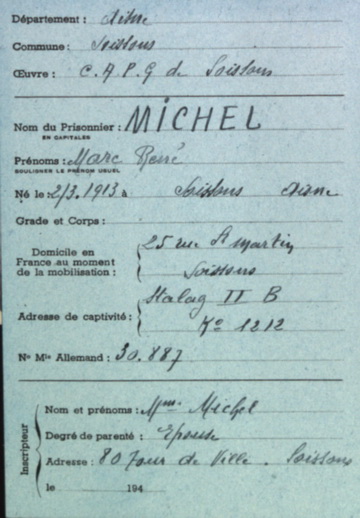 Département : Aisne
Commune : Soissons
Œuvre : C.A.P.G de Soissons
Nom du Prisonnier : MICHEL
EN CAPITALES
Prénoms : Marc René
SOULIGNER LE PRÉNOM USUEL
Né le : 2/3.1913 à Soissons Aisne
Grade et Corps :
Domicile en France au moment de la mobilisation :
25 rue St Martin
Soissons
Adresse de captivité :
Stalag II B
Kº 1212
Nº Mle Allemand : 30.887
Inscripteur
Nom et prénoms : Mme Michel
Degré de parenté : Epouse
Adresse : 80 Tour de Ville . Soissons
le 194